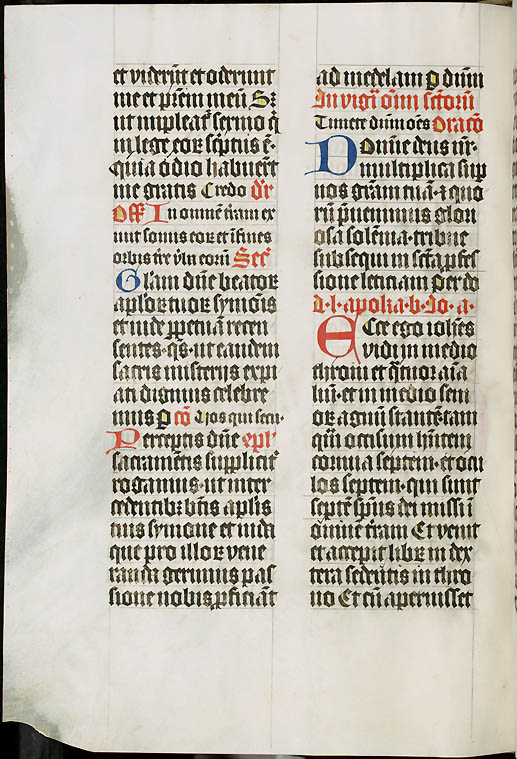 et viderūt et oderunt
me et prēm meū Sꝫ
ut impleat̉ sermo q̄
in lege eoꝝ sc̄ptus ē·
Quia odio habuer̄t
me gratis Credo dr̄
Off̄ In omnem t̄ram ex
iuit sonus eoꝝ et ī fines
orbis tr̄e v̄ba eorū Sec̄
Glam dn̄e beatoꝝ
aplōꝝ tuoꝝ symōis
et iude ꝑpetuā recen
sentes· qs̄· ut eandem
sacris misterijs expi
ati dignius celebre
mus p cō Uos qui secu·
Perceptis dn̄e epl̄
sacramētis supplicit̉
rogamus· ut inter
cedentibꝫ bt̄is aplīs
tuis symone et iuda
que pro illoꝝ vene
randa gerimus pas
sione nobis ꝓficiāt
ad medelam p dnm̄
In vigīl om̄i sc̄torū
Timete dn̄m oēs Oracō
Domine deus nr̄·
multiplica sup̄
nos grām tuā· ⁊ quo
rū p̄uenimus glori
osa solēnia· tribue
subsequi in sc̄ta ꝓfes
sione leticiam per do
d· l· apolia· b· Jo· a·
Ecce ego ioh̄es
vidi in medio
throni et q̄tuor aīa
liū· et in medio seni
oꝝ agnū stantē· tam
quā occisum hn̄tem
cornua septem· et ocu
los septem· qui sunt
septē sp̄us dei missi ī
omnē t̄ram Et venit
et accepit libꝝ in dex
tera sedētis in thro
no Et cū aperuisset